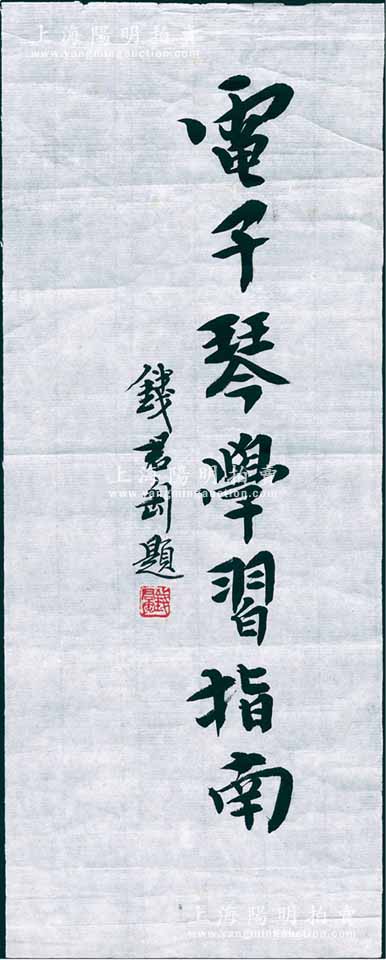 上海陽明拍賣
www.yangmingauction.com
電子琴學習指南
錢君匋題
上海陽明拍賣
www.yangmingauction.com
上海陽明拍賣
www.yangmingauction.com